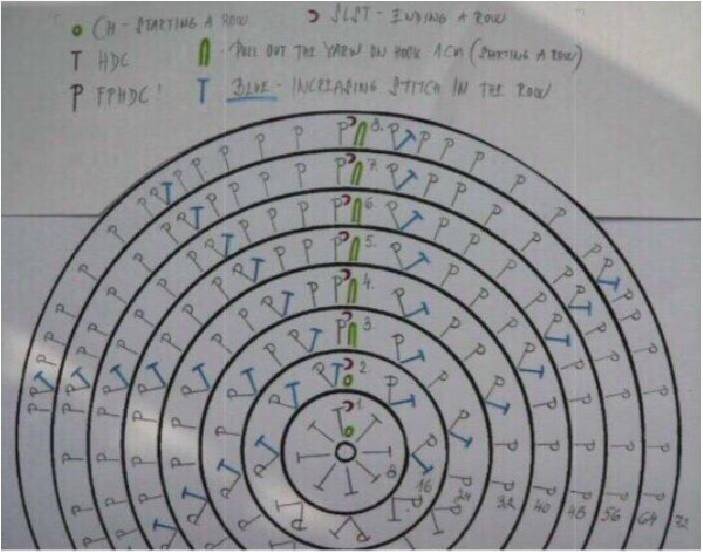 CH - STARTING A ROW
SLST - ENDING A ROW
T HDC
- PULL OUT THE YARN ON HOOK 1CM (STARTING A ROW)
P FPHDC!
T BLUE - INCREASING STITCH IN THE ROW
8.
7.
6.
5.
4.
3.
2
1
8
16
24
32
40
48
56
64
72